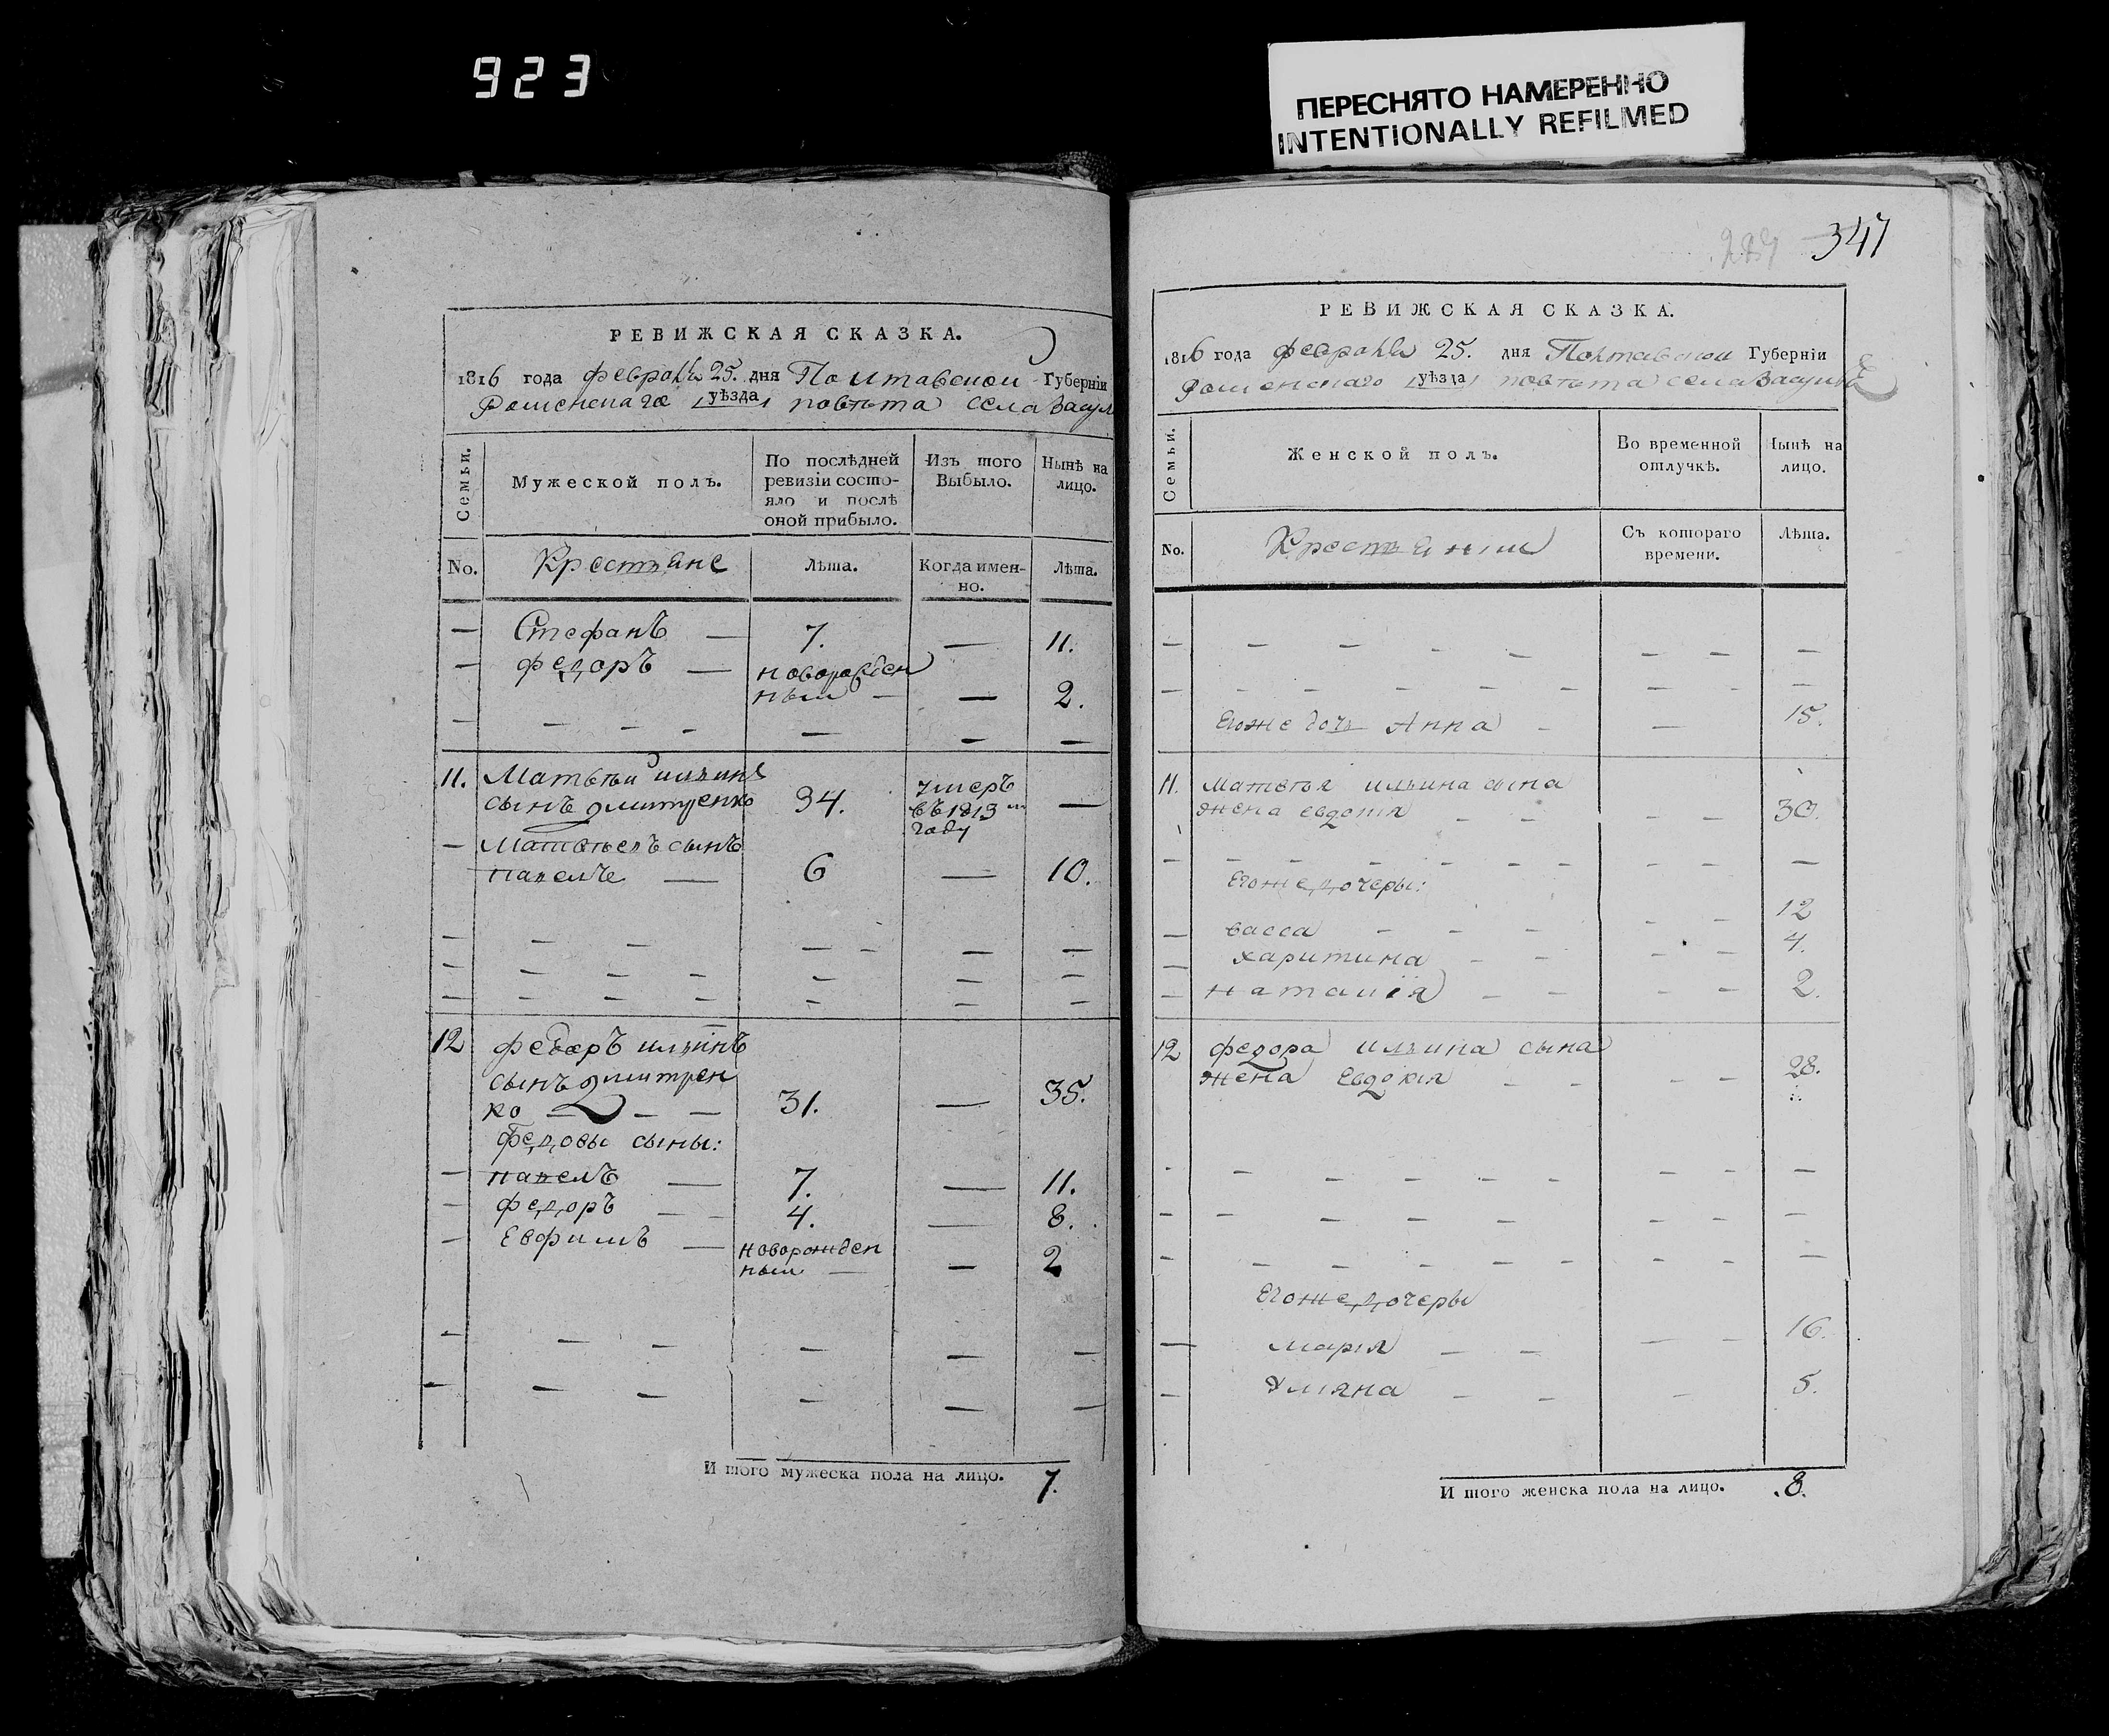 923
ПЕРЕСНЯТО НАМЕРЕННО
INTENTIONALLY REFILMED
РЕВИЖСКАЯ СКАЗКА.
1816 года февраля 25. дня Полтавской Губернїи
Роменскаго уѣзда повѣта села Засул
Семьи.
Мужеской полъ.
По послѣдней ревизіи состояло и послѣ оной прибыло.
Изъ того Выбыло.
Нынѣ на лицо.
No. Крестьяне Лѣта. Когда именно. Лѣта.
— Стефанъ — 7. — 11.
— федоръ — новорожден
ный — — 2.
— — — — — — —
11. Матвѣй ильинъ
сынъ дмитренко 34. умеръ въ 1813м году —
— Матвѣевъ сынъ
павелъ — 6 — 10.
— — — — — — —
— — — — — — — —
— — — — — — — —
12 федоръ ильинъ
сынъ дмитрен
ко — — — 31. — 35.
Федовы сыны:
— павелъ — 7. — 11.
— федоръ — — 4. — 8.
— Евфимъ — новорожден
ный — — 2
— — — — — —
— — — — — —
И того мужеска пола на лицо. 7.
347
РЕВИЖСКАЯ СКАЗКА.
1816 года февраля 25. дня Полтавской Губернїи
Роменскаго уѣзда повѣта села Засулья
Семьи.
Женской полъ.
Во временной отлучкѣ.
Нынѣ на лицо.
No. Крестьянки Съ котораго времени. Лѣта.
— — — — — — — —
— — — — — — — — — —
Егоже дочь Анна — — 15.
11. Матвѣя ильина сына
жена евдокія — — — — 30.
— — — — — — — — — —
Егоже дочеры:
— васса — — — — — 12
— харитина — — — — 4.
— наталія — — — — 2.
12 федора ильина сына
жена Евдокія — — — — 28.
— — — — — — — — —
— — — — — — — — —
— — — — — — — — —
Егоже дочеры
— марія — — — — 16.
— Уляна — — — 5.
И того женска пола на лицо. 8.